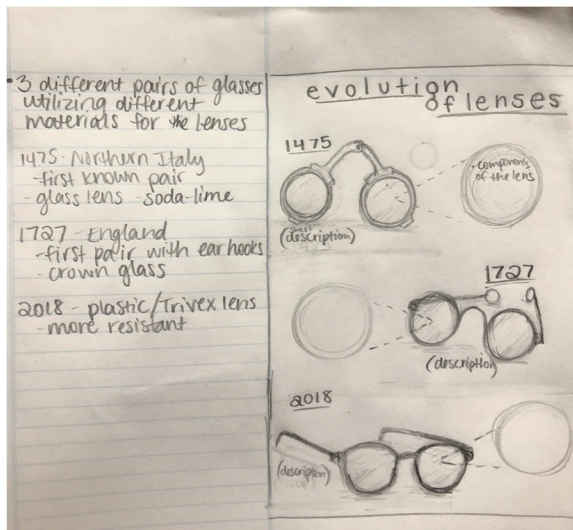 • 3 different pairs of glasses
utilizing different
materials for the lenses
1475 - Northern Italy
- first known pair
- glass lens - soda-lime
1727 - England
- first pair with ear hooks
- crown glass
2018 - plastic/Trivex lens
- more resistant
evolution
of lenses
1475
• components
of the lens
(description)
1727
(description)
2018
(description)